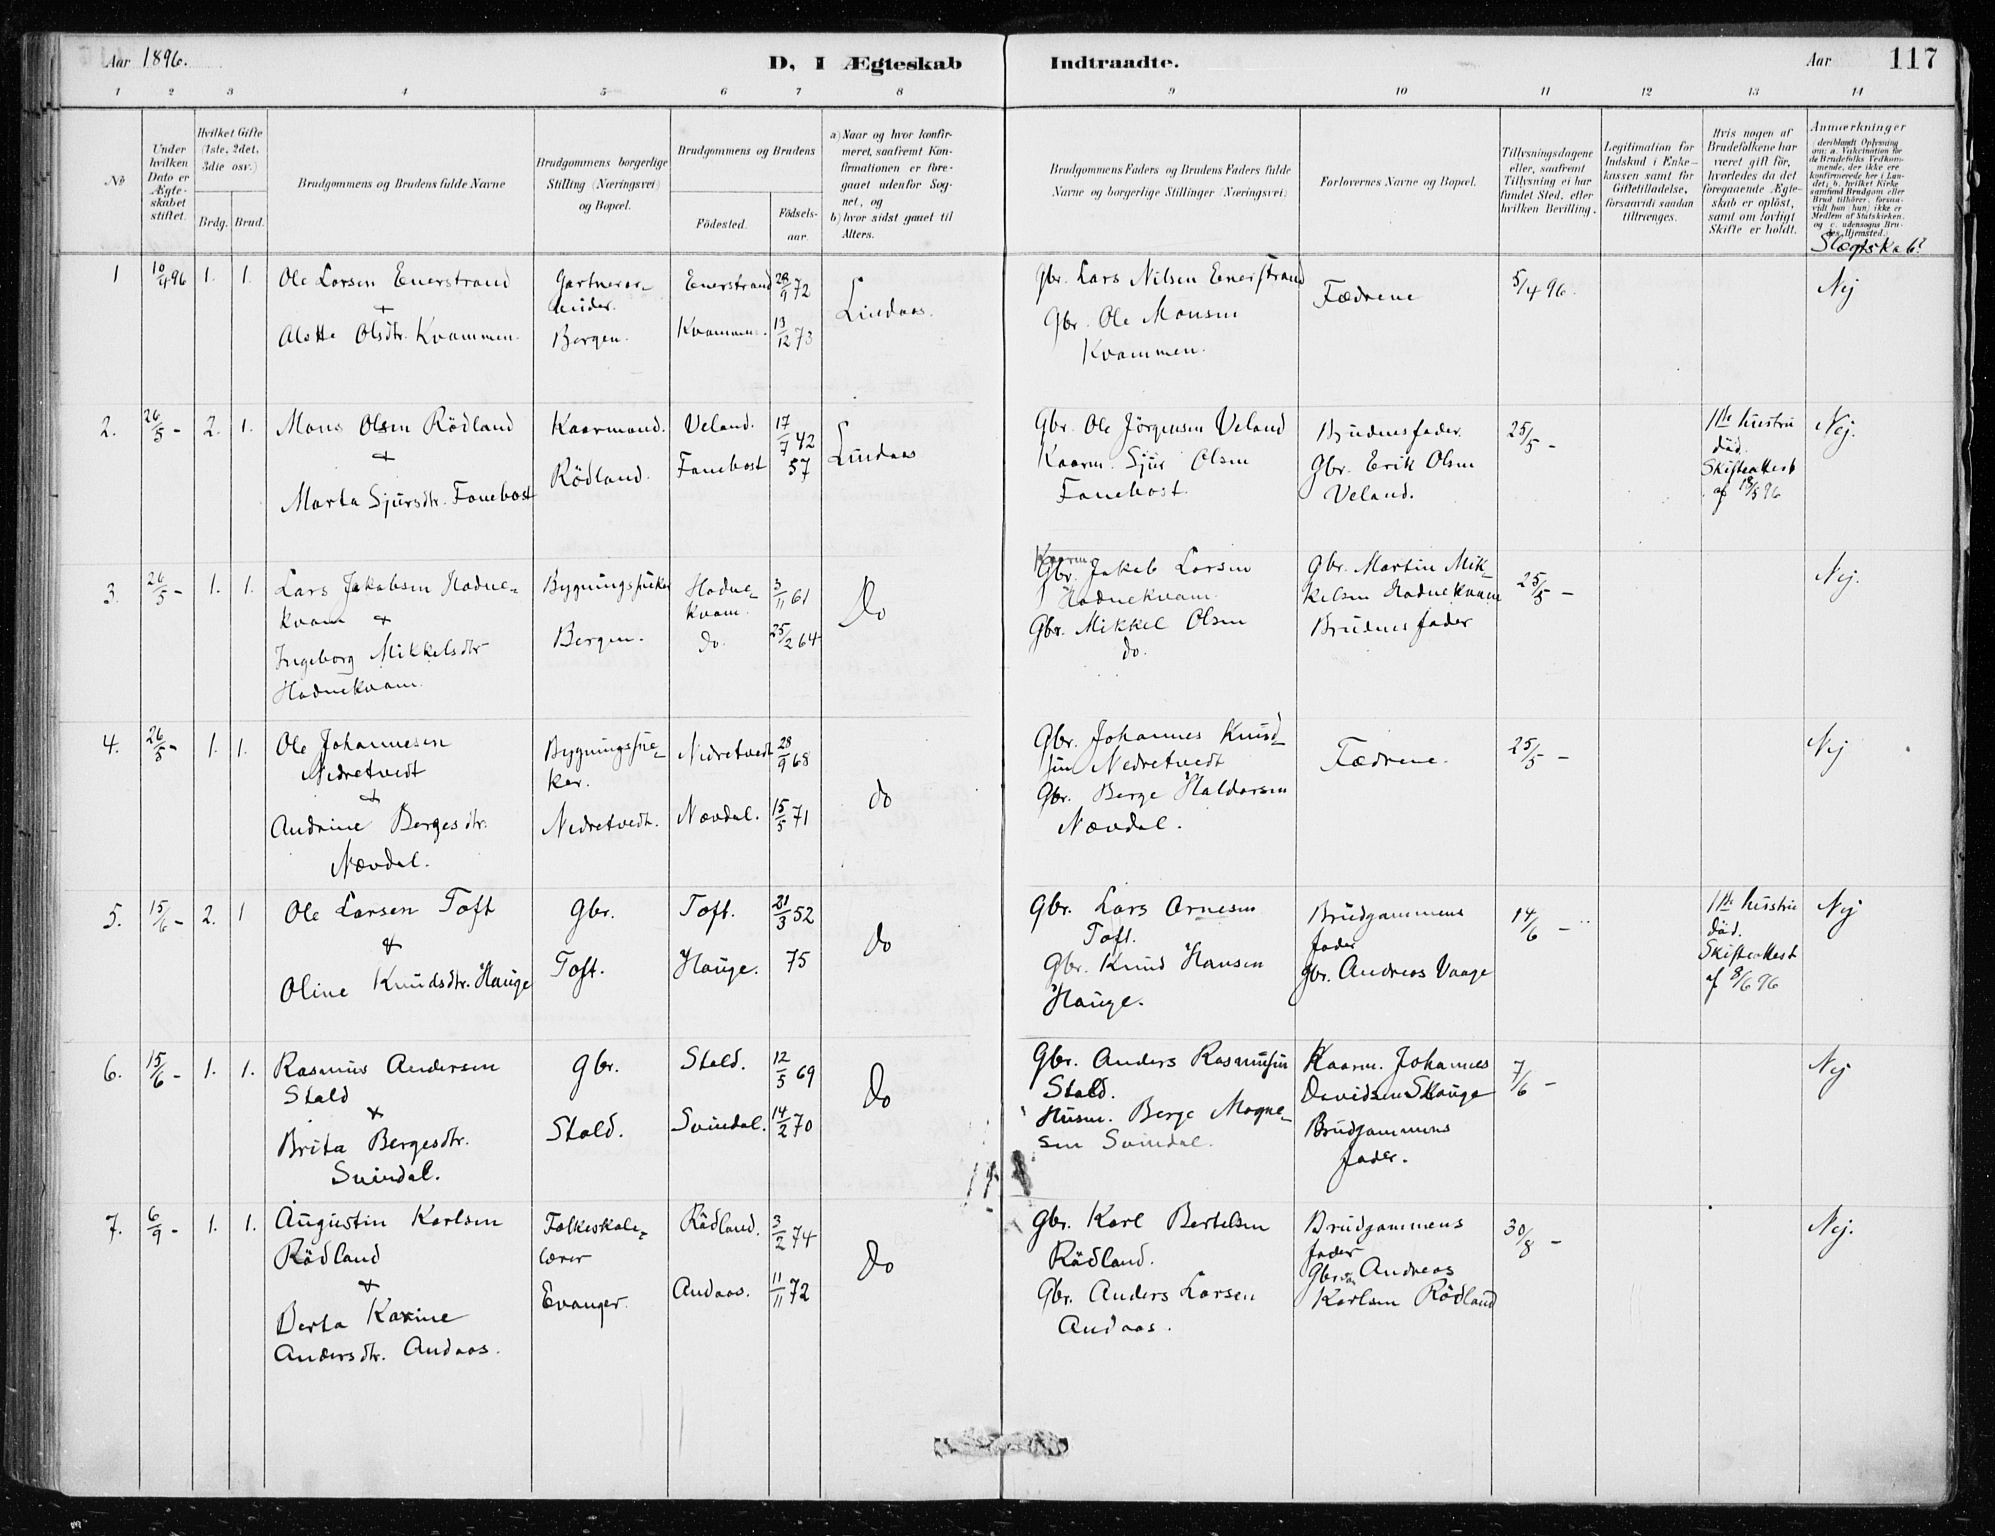 Aar 1896.
D, I Ægteskab Indtraadte.
Aar 117
1 2 3 4 5 6 7 8 9 10 11 12 13 14
No
Under hvilken Dato er Ægteskabet stiftet.
Hvilket Gifte (1ste, 2det, 3die osv.)
Brdg. Brud.
Brudgommens og Brudens fulde Navne
Brudgommens borgerlige Stilling (Næringsvei) og Bopæl.
Brudgommens og Brudens
Fødested.
Fødsels-aar.
a) Naar og hvor konfirmeret, saafremt Konfirmationen er foregaaet udenfor Sognet, og
b) hvor sidst gaaet til Alters.
Brudgommens Faders og Brudens Faders fulde Navne og borgerlige Stillinger (Næringsvei).
Forlovernes Navne og Bopæl.
Tillysningsdagene eller, saafremt Tillysning ei har fundet Sted, efter hvilken Bevilling.
Legitimation for Indskud i Enkekassen samt for Giftetilladelse, forsaavidt saadan tiltrænges.
Hvis nogen af Brudefolkene har været gift før, hvorledes da det foregaaende Ægteskab er opløst, samt om lovligt Skifte er holdt.
Anmærkninger
Slægtskab?
1 10/4 96 1. 1.
Ole Larsen Enerstrand
+
Alette Olsdtr. Kvammen.
Gartnerar-
beider.
Bergen.
Enerstrand 28/9 72
Kvammen. 13/12 73
Lindaas.
Gbr. Lars Nilsen Enerstrand
Gbr. Ole Monsen
Kvammen.
Fædrene
5/4 96.
Nej
2. 26/5 - 2. 1.
Mons Olsen Rödland
&
Marta Sjursdtr. Fanebost
Kaarmand.
Rödland.
Veland. 17/7 42
Fanebost 57
Lindaas
Gbr. Ole Jörgensen Veland
Kaarm. Sjur Olsen
Fanebost.
Brudens fader.
Gbr. Erik Olsen
Veland.
25/5 -
1ste hustru
död.
Skifteattest
af 18/5 96
Nej.
3. 26/5 - 1. 1.
Lars Jakobsen Hodne-
kvam &
Ingeborg Mikkelsdtr
Hodnekvam.
Bygningssneker
Bergen.
Hodne-
kvam. 3/11 61
do. 25/2 64
Do
Kaarm.
Gbr. Jakob Larsen
Hodnekvam.
Gbr. Mikkel Olsen
do.
Gbr. Martin Mik-
kelsen Hodnekvam
Brudens fader
25/5 -
Nej.
4. 26/5 - 1. 1.
Ole Johannesen
Nedretvedt
&
Andrine Bergesdtr.
Nævdal.
Bygningssne-
ker.
Nedretvedt.
Nedretvedt 28/9 68
Nævdal. 15/5 71
do
Gbr. Johannes Knud-
sen Nedretvedt
Gbr. Berge Haldorsen
Nævdal.
Fædrene.
25/5 -
Nej
5. 15/6 - 2. 1
Ole Larsen Toft
&
Oline Knudsdtr. Hauge
Gbr.
Toft.
Toft. 21/3 52
Hauge. 75
do
Gbr. Lars Arnesen
Toft.
Gbr. Knud Hansen
Hauge.
Brudgommens
fader
Gbr. Andreas Vaage
14/6 -
1ste hustru
död.
Skifteattest
af 8/6 96
Nej
6. 15/6 - 1. 1.
Rasmus Andersen
Stald
&
Brita Bergesdtr.
Svindal.
Gbr.
Stald.
Stald. 12/5 69
Svindal. 14/2 70
Do
Gbr. Anders Rasmussen
Stald.
Husm. Berge Mogne-
sen Svindal.
Kaarm. Johannes
Davidsen Skauge
Brudgommens
fader.
7/6 -
Nej
7. 6/9 - 1. 1.
Augustin Karlsen
Rödland
&
Berta Karine
Andersdtr. Andaas.
Folkeskole-
lærer
Evanger.
Rödland. 3/2 74
Andaas. 11/11 72
Do
Gbr. Karl Bertelsen
Rödland.
Gbr. Anders Larsen
Andaas.
Brudgommens
fader
Andreas
Karlsen Rödland
30/8 -
Nej.